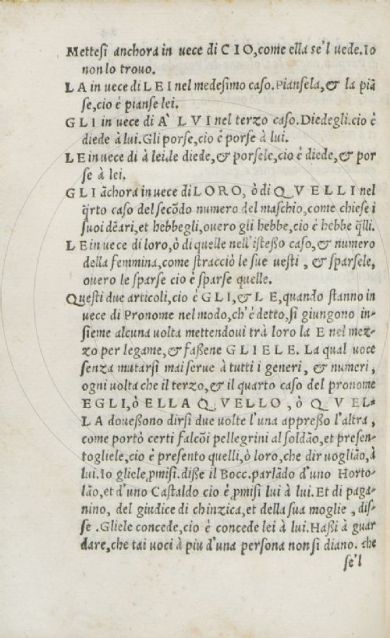 Mettesi anchora in uece di CIO, come ella se'l uede. Io
non lo trouo.
LA in uece di LEI nel medesimo caso. Piansela, & la piã
se, cio è pianse lei.
GLI in uece di A' LVI nel terzo caso. Diedegli. cio è
diede à lui. Gli porse, cio è porse à lui.
LE in uece di à lei. le diede, & porsele, cio è diede, & por
se à lei.
GLI ãchora in uece di LORO, ò di QVELLI nel
q̃rto caso del secõdo numero del maschio, come chiese i
suoi dẽari, et hebbegli, ouero gli hebbe, cio è hebbe q̃lli.
LE in uece di loro, ò di quelle nell'istesso caso, & numero
della femmina, come stracciò le sue uesti, & sparsele,
ouero le sparse cio è sparse quelle.
Questi due articoli, cio è GLI, & LE, quando stanno in
uece di Pronome nel modo, ch'è detto, si giungono in-
sieme alcuna uolta mettendoui trà loro la E nel mez-
zo per legame, & fassene GLIELE. La qual uoce
senza mutarsi mai serue à tutti i generi, & numeri,
ogni uolta che il terzo, & il quarto caso del pronome
EGLI, ò ELLA QVELLO, ò QVEL-
LA douessono dirsi due uolte l'una appresso l'altra,
come portò certi falcõi pellegrini al soldão, et presen-
togliele, cio è presento quelli, ò loro, che dir uoglião, à
lui. Io gliele ꝓmisi. disse il Bocc. parlãdo d'uno Horto-
lão, et d'uno Castaldo cio è ꝓmisi lui à lui. Et di paga-
nino, del giudice di chinzica, et della sua moglie, dis-
se. Gliele concede, cio è concede lei à lui. Hassi à guar
dare, che tai uoci à piu d'una persona non si diano. che
se'l